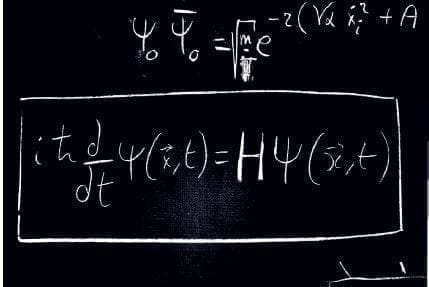 Ψ₀ Ψ̄₀ = √m e^-2(√α ẋᵢ² + A
iħ d/dt Ψ(x⃗,t) = H Ψ(x⃗,t)